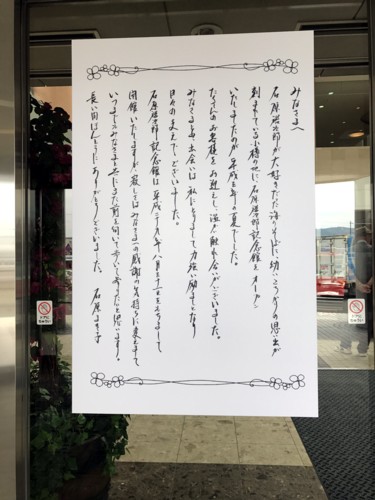 みなさまへ
石原裕次郎が大好きだった海のそばに、幼いころからの思い出が
刻まれている小樽の地に石原裕次郎記念館をオープン
いたしましたのが、平成三年の夏でした。
たくさんのお客様をお迎えし、温かい触れ合いがございました。
みなさまとの出会いは私にとりまして力強い励ましとなり
日々の支えでございました。
石原裕次郎記念館は平成二十九年八月三十一日をもちまして
閉館いたしますが、寂しさはみなさまへの感謝の気持ちに変えまして
いつまでもみなさまと共にまた前を向いて歩いて参ろうと思います。
長い間ほんとうにありがとうございました。 石原まき子